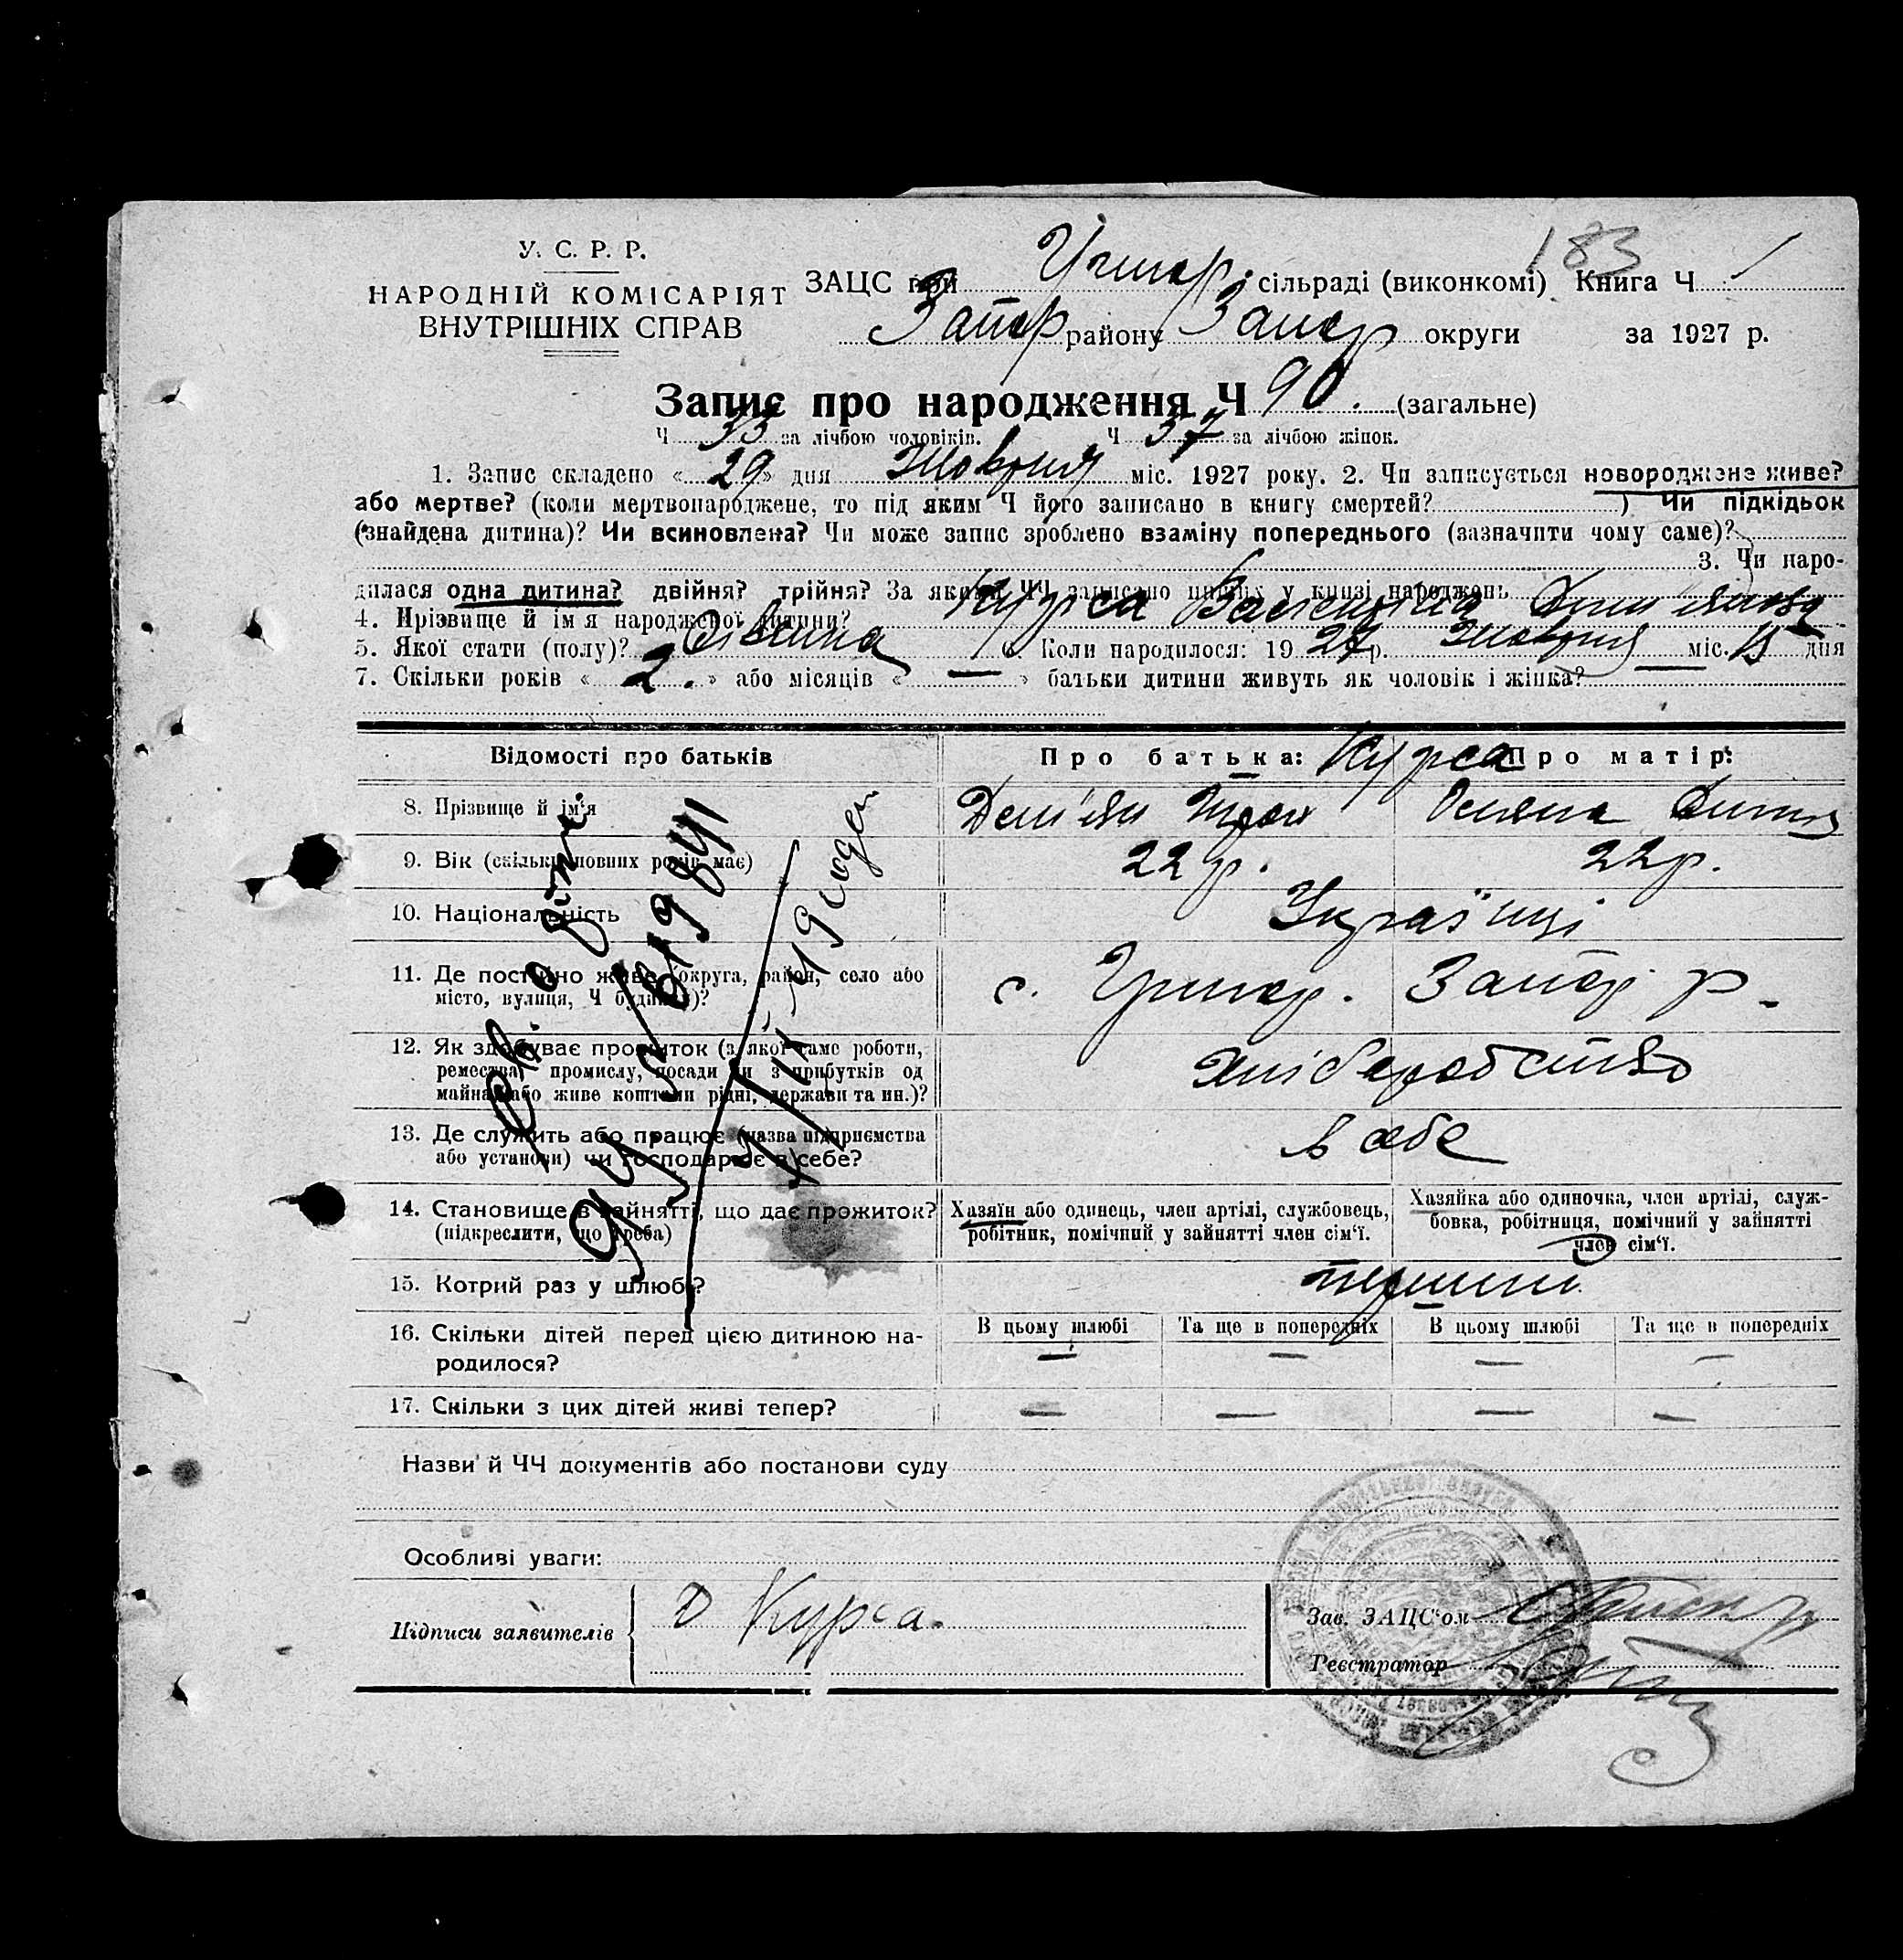 У. С. Р. Р.
НАРОДНІЙ КОМІСАРІЯТ
ВНУТРІШНІХ СПРАВ
183
ЗАЦС при сільраді (виконкомі) Книга Ч
Запор району Запор округи за 1927 р.
Запис про народження Ч 90. (загальне)
Ч 33 за лічбою чоловіків. Ч 57 за лічбою жінок.
1. Запис складено «29» дня Жовтня міс. 1927 року. 2. Чи записується новороджене живе?
або мертве? (коли мертвонароджене, то під яким Ч його записано в книгу смертей? ) Чи підкідьок
(знайдена дитина)? Чи всиновлена? Чи може запис зроблено взаміну попереднього (зазначити чому саме)?
3. Чи наро-
дилася одна дитина? двійня? трійня? За якими ЧЧ записано у книзі народжень
4. Прізвище й ім'я народженої дитини? Курса
5. Якої стати (полу)? 6. Коли народилося: 1927 р. Жовтня міс. 15 дня
7. Скільки років «2.» або місяців «—» батьки дитини живуть як чоловік і жінка?
Відомості про батьків Про батька: Курса Про матір:
8. Прізвище й ім'я Дем'ян
9. Вік (скільки повних років має) 22 р. 22 р.
10. Національність Українці
11. Де постійно живе (округа, район, село або
місто, вулиця, Ч будинку)? с. Запор. р.
12. Як здобуває прожиток (з якої саме роботи,
ремества, промислу, посади чи з прибутків од
майна або живе коштами рідні, держави та ин.)? Хліборобство
13. Де служить або працює (назва підприємства
або установи) чи господарює в себе? в себе
14. Становище в зайнятті, що дає прожиток?
(підкреслити, що треба)
Хазяїн або одинець, член артілі, службовець,
робітник, помічний у зайнятті член сім'ї.
Хазяйка або одиночка, член артілі, служ-
бовка, робітниця, помічний у зайнятті
член сім'ї.
15. Котрий раз у шлюбі? перший
16. Скільки дітей перед цією дитиною на-
родилося?
В цьому шлюбі Та ще в попередніх В цьому шлюбі Та ще в попередніх
— — — —
17. Скільки з цих дітей живі тепер? — — — —
Назви й ЧЧ документів або постанови суду
Особливі уваги:
Підписи заявителів Д Курса.
Зав. ЗАЦС'ом
Реєстратор